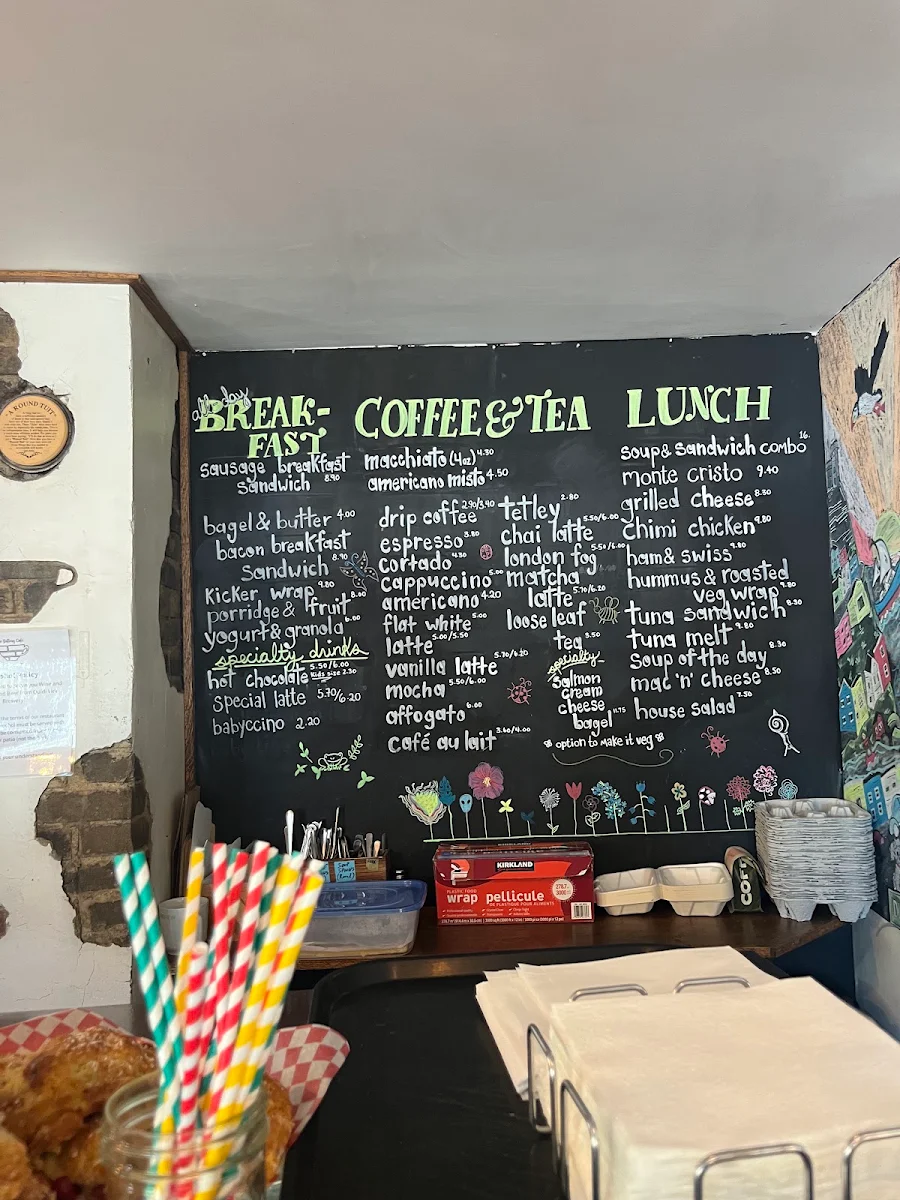 A ROUND TUIT
all day
BREAK-
FAST
sausage breakfast
sandwich 8.90
bagel & butter 4.00
bacon breakfast
sandwich 8.90
Kicker wrap 9.80
porridge & fruit 8.00
yogurt & granola 6.00
specialty drinks
hot chocolate 5.50/6.00 Kids size 2.30
special latte 5.70/6.20
babyccino 2.20
COFFEE & TEA
macchiato (4oz) 4.30
americano misto 4.50
drip coffee 2.90/3.40
espresso 3.80
cortado 4.30
cappuccino 5.00
americano 4.20
flat white 5.00
latte 5.00/5.50
vanilla latte 5.70/6.20
mocha 5.50/6.00
affogato 6.00
café au lait 3.60/4.00
tetley 2.80
chai latte 5.50/6.00
london fog 5.50/6.00
matcha
latte 5.70/6.20
loose leaf
tea 3.50
specialty
salmon
cream
cheese
bagel 11.75
option to make it veg
LUNCH
soup & sandwich combo 16.
monte cristo 9.40
grilled cheese 8.80
chimi chicken 9.80
ham & swiss 9.80
hummus & roasted
veg wrap 9.80
tuna sandwich 8.80
tuna melt 9.80
soup of the day 8.30
mac 'n' cheese 8.50
house salad 7.50
KIRKLAND
PLASTIC FOOD
wrap pellicule
DE PLASTIQUE POUR ALIMENTS